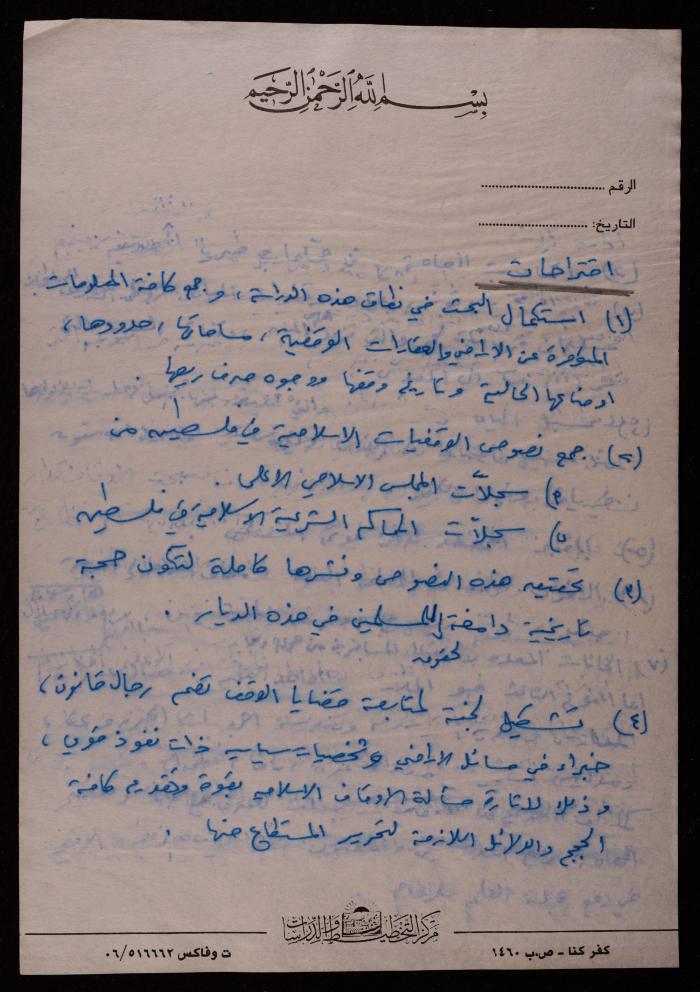 بسم الله الرحمن الرحيم
الرقم ..................................
التاريخ: ..............................
اقتراحات
(١) استكمال البحث في نطاق هذه الدراسة، وجمع كافة المعلومات
المتوفرة عن الاراضي والعقارات الوقفية، مساحاتها، حدودها،
اوضاعها الحالية وتاريخ وقفها ووجوه صرف ريعها.
(٢) جمع نصوص الوقفيات الاسلامية في فلسطين من
أ) سجلات المجلس الاسلامي الاعلى.
ب) سجلات المحاكم الشرعية الاسلامية في فلسطين
(٣) تحقيق هذه النصوص ونشرها كاملة لتكون حجة
تاريخية دامغة لحقوق المسلمين في هذه الديار.
(٤) تشكيل لجنة لمتابعة قضايا الوقف تضم رجال قانون،
خبراء في مسائل الاراضي وشخصيات سياسية ذات نفوذ قوي،
وذلك لاثارة مسألة الاوقاف الاسلامية بقوة وتقديم كافة
الحجج والدلائل اللازمة لتحرير المستطاع منها.
مركز التخطيط والدراسات
كفر كنا - ص.ب ١٤٦٠
ت وفاكس ٠٦/٥١٦٦٦٢